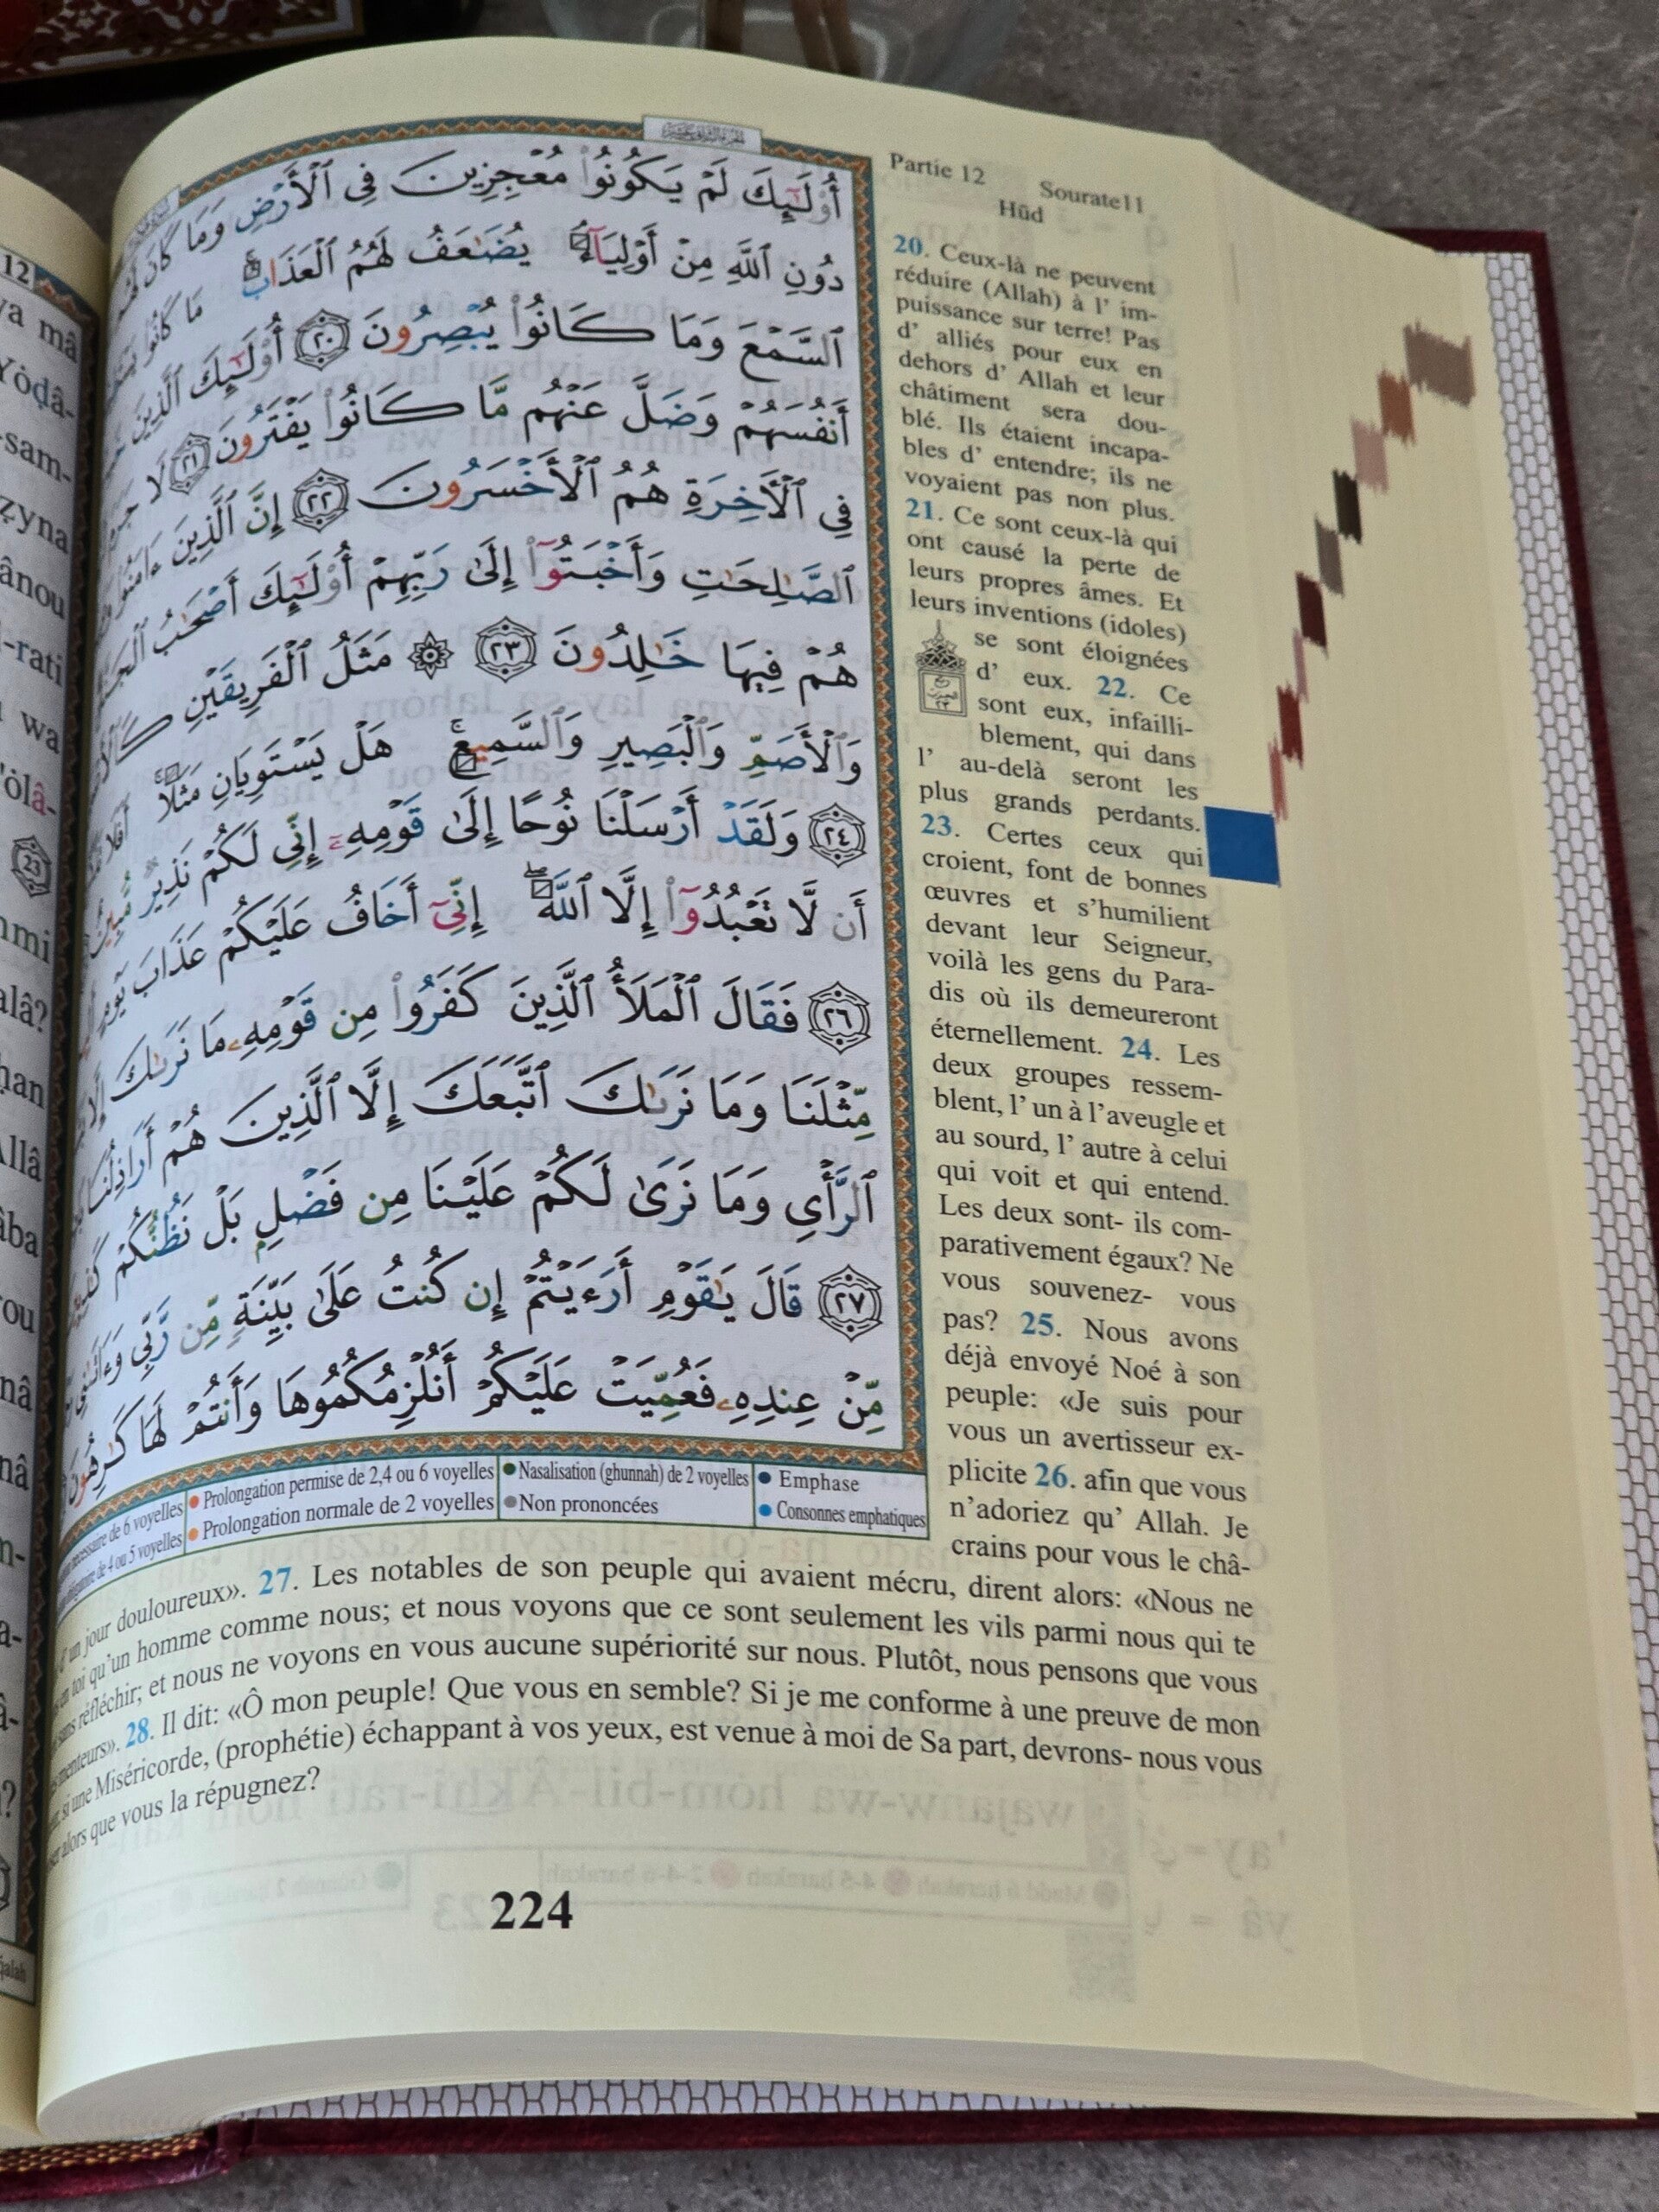 أُوْلَٰٓئِكَ لَمْ يَكُونُوا۟ مُعْجِزِينَ فِى ٱلْأَرْضِ وَمَا كَانَ لَهُم
دُونِ ٱللَّهِ مِنْ أَوْلِيَآءَ يُضَٰعَفُ لَهُمُ ٱلْعَذَابُ مَا كَانُوا۟
ٱلسَّمْعَ وَمَا كَانُوا۟ يُبْصِرُونَ ٢٠ أُوْلَٰٓئِكَ ٱلَّذِينَ
أَنفُسَهُمْ وَضَلَّ عَنْهُم مَّا كَانُوا۟ يَفْتَرُونَ ٢١ لَا جَرَمَ
فِى ٱلْأَخِرَةِ هُمُ ٱلْأَخْسَرُونَ ٢٢ إِنَّ ٱلَّذِينَ ءَامَنُوا۟
ٱلصَّٰلِحَٰتِ وَأَخْبَتُوٓا۟ إِلَىٰ رَبِّهِمْ أُوْلَٰٓئِكَ أَصْحَٰبُ
هُمْ فِيهَا خَٰلِدُونَ ٢٣ ۞ مَثَلُ ٱلْفَرِيقَيْنِ
وَٱلْأَصَمِّ وَٱلْبَصِيرِ وَٱلسَّمِيعِ هَلْ يَسْتَوِيَانِ مَثَلًا
٢٤ وَلَقَدْ أَرْسَلْنَا نُوحًا إِلَىٰ قَوْمِهِۦٓ إِنِّى لَكُمْ نَذِيرٌ مُّبِينٌ
أَن لَّا تَعْبُدُوٓا۟ إِلَّا ٱللَّهَ إِنِّىٓ أَخَافُ عَلَيْكُمْ عَذَابَ يَوْمٍ
٢٦ فَقَالَ ٱلْمَلَأُ ٱلَّذِينَ كَفَرُوا۟ مِن قَوْمِهِۦ مَا نَرَىٰكَ إِلَّا
مِّثْلَنَا وَمَا نَرَىٰكَ ٱتَّبَعَكَ إِلَّا ٱلَّذِينَ هُمْ أَرَاذِلُنَا
ٱلرَّأْىِ وَمَا نَرَىٰ لَكُمْ عَلَيْنَا مِن فَضْلٍ بَلْ نَظُنُّكُمْ
٢٧ قَالَ يَٰقَوْمِ أَرَءَيْتُمْ إِن كُنتُ عَلَىٰ بَيِّنَةٍ مِّن رَّبِّى وَءَاتَىٰنِى
مِّنْ عِندِهِۦ فَعُمِّيَتْ عَلَيْكُمْ أَنُلْزِمُكُمُوهَا وَأَنتُمْ لَهَا كَٰرِهُونَ
nécessaire de 6 voyelles
● Prolongation permise de 2,4 ou 6 voyelles
● Nasalisation (ghunnah) de 2 voyelles
● Emphase
obligatoire de 4 ou 5 voyelles
● Prolongation normale de 2 voyelles
● Non prononcées
● Consonnes emphatiques
Partie 12 Sourate11
Hūd
20. Ceux-là ne peuvent
réduire (Allah) à l' im-
puissance sur terre! Pas
d' alliés pour eux en
dehors d' Allah et leur
châtiment sera dou-
blé. Ils étaient incapa-
bles d' entendre; ils ne
voyaient pas non plus.
21. Ce sont ceux-là qui
ont causé la perte de
leurs propres âmes. Et
leurs inventions (idoles)
se sont éloignées
d' eux. 22. Ce
sont eux, infailli-
blement, qui dans
l' au-delà seront les
plus grands perdants.
23. Certes ceux qui
croient, font de bonnes
œuvres et s'humilient
devant leur Seigneur,
voilà les gens du Para-
dis où ils demeureront
éternellement. 24. Les
deux groupes ressem-
blent, l' un à l'aveugle et
au sourd, l' autre à celui
qui voit et qui entend.
Les deux sont- ils com-
parativement égaux? Ne
vous souvenez- vous
pas? 25. Nous avons
déjà envoyé Noé à son
peuple: «Je suis pour
vous un avertisseur ex-
plicite 26. afin que vous
n'adoriez qu' Allah. Je
crains pour vous le châ-
d' un jour douloureux». 27. Les notables de son peuple qui avaient mécru, dirent alors: «Nous ne
en toi qu'un homme comme nous; et nous voyons que ce sont seulement les vils parmi nous qui te
sans réfléchir; et nous ne voyons en vous aucune supériorité sur nous. Plutôt, nous pensons que vous
menteurs». 28. Il dit: «Ô mon peuple! Que vous en semble? Si je me conforme à une preuve de mon
si une Miséricorde, (prophétie) échappant à vos yeux, est venue à moi de Sa part, devrons- nous vous
alors que vous la répugnez?
224